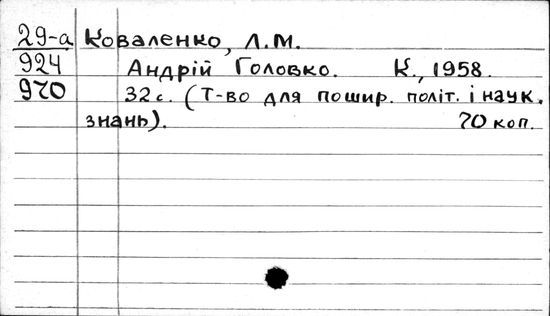 29-а Коваленко, Л.М.
924 Андрій Головко. К., 1958.
970 32 с. (Т-во для пошир. політ. і наук.
знань). 70 коп.